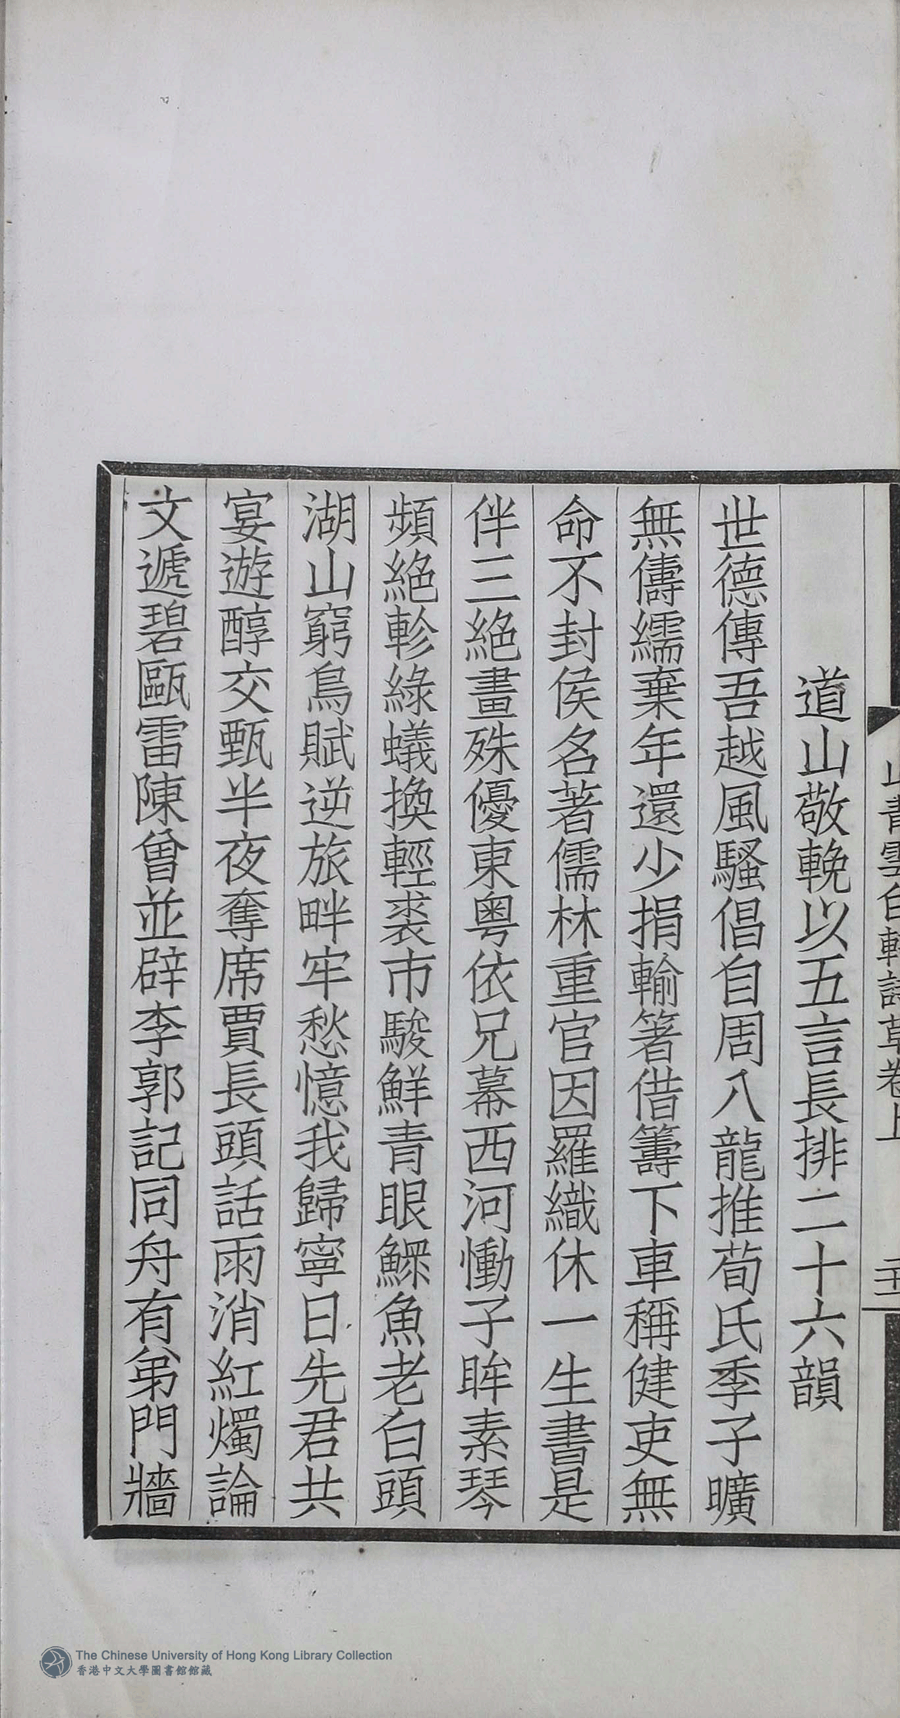 道山敬輓以五言長排二十六韻
世德傳吾越風騷倡自周八龍推荀氏季子曠
無儔繻棄年還少捐輸箸借籌下車稱健吏無
命不封侯名著儒林重官因羅織休一生書是
伴三絕畫殊優東粵依兄幕西河慟子眸素琴
頻絕軫綠蟻換輕裘市駿鮮青眼鰥魚老白頭
湖山窮鳥賦逆旅畔牢愁憶我歸寧日先君共
宴遊醇交甄半夜奪席賈長頭話雨消紅燭論
文遞碧甌雷陳曾並辟李郭記同舟有弟門牆
The Chinese University of Hong Kong Library Collection
香港中文大學圖書館館藏